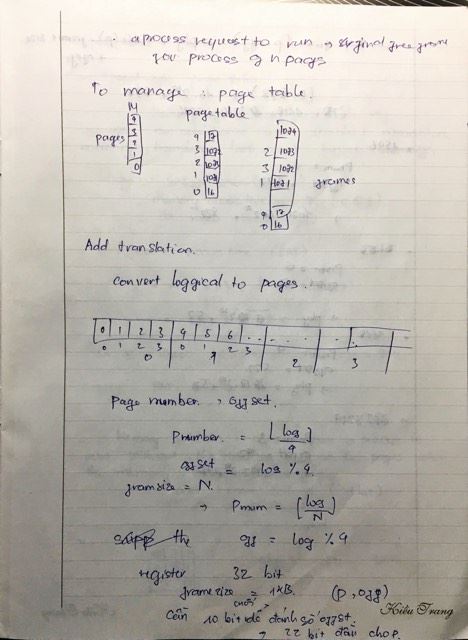 . a process request to run → original free frame
for process of n pages
To manage : page table.
LM
pages
4
3
2
1
0
page table
4 17
3 1072
2 1073
1 1071
0 16
1074
2 1073
3 1072
1 1071
4 17
0 16
frames
Add translation.
convert loggical to pages.
0 1 2 3 4 5 6 . . . . . .
0 1 2 3 0 1 2 3
0 1 2 3
page number , offset.
Pnumber = ⌊log/4⌋
offset = log % 4.
framsize = N.
→ Pnum = ⌊log/N⌋
off = log % 4
register 32 bit
frame size = 1KB. (p, off)
Cần 10 bit để đánh số offset
→ 22 bit đầu cho p
Kiều Trang